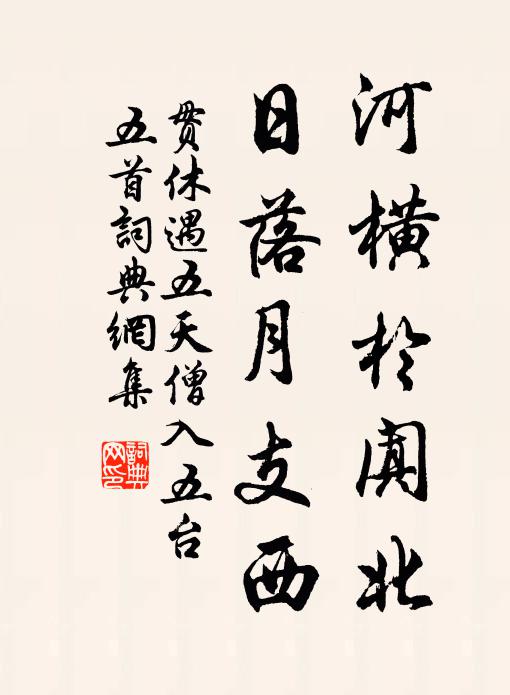 河橫於闐北
日落月支西
貫休遇五天僧入五台
五首詞典網集
詞典網印